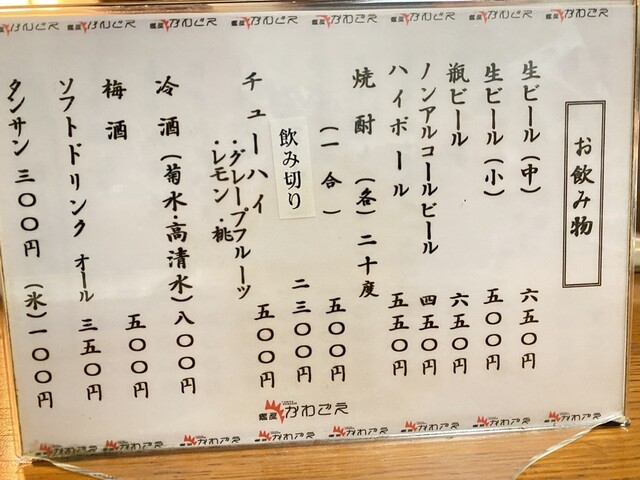 お飲み物
生ビール（中） 六五〇円
生ビール（小） 五〇〇円
瓶ビール 六五〇円
ノンアルコールビール 四五〇円
ハイボール 五五〇円
焼酎（各）二十度
（一合） 五〇〇円
飲み切り 二三〇〇円
チューハイ 五〇〇円
・グレープフルーツ
・レモン・桃
冷酒（菊水・高清水）八〇〇円
梅酒 五〇〇円
ソフトドリンク オール 三五〇円
タンサン 三〇〇円 （氷）一〇〇円
かわごえ